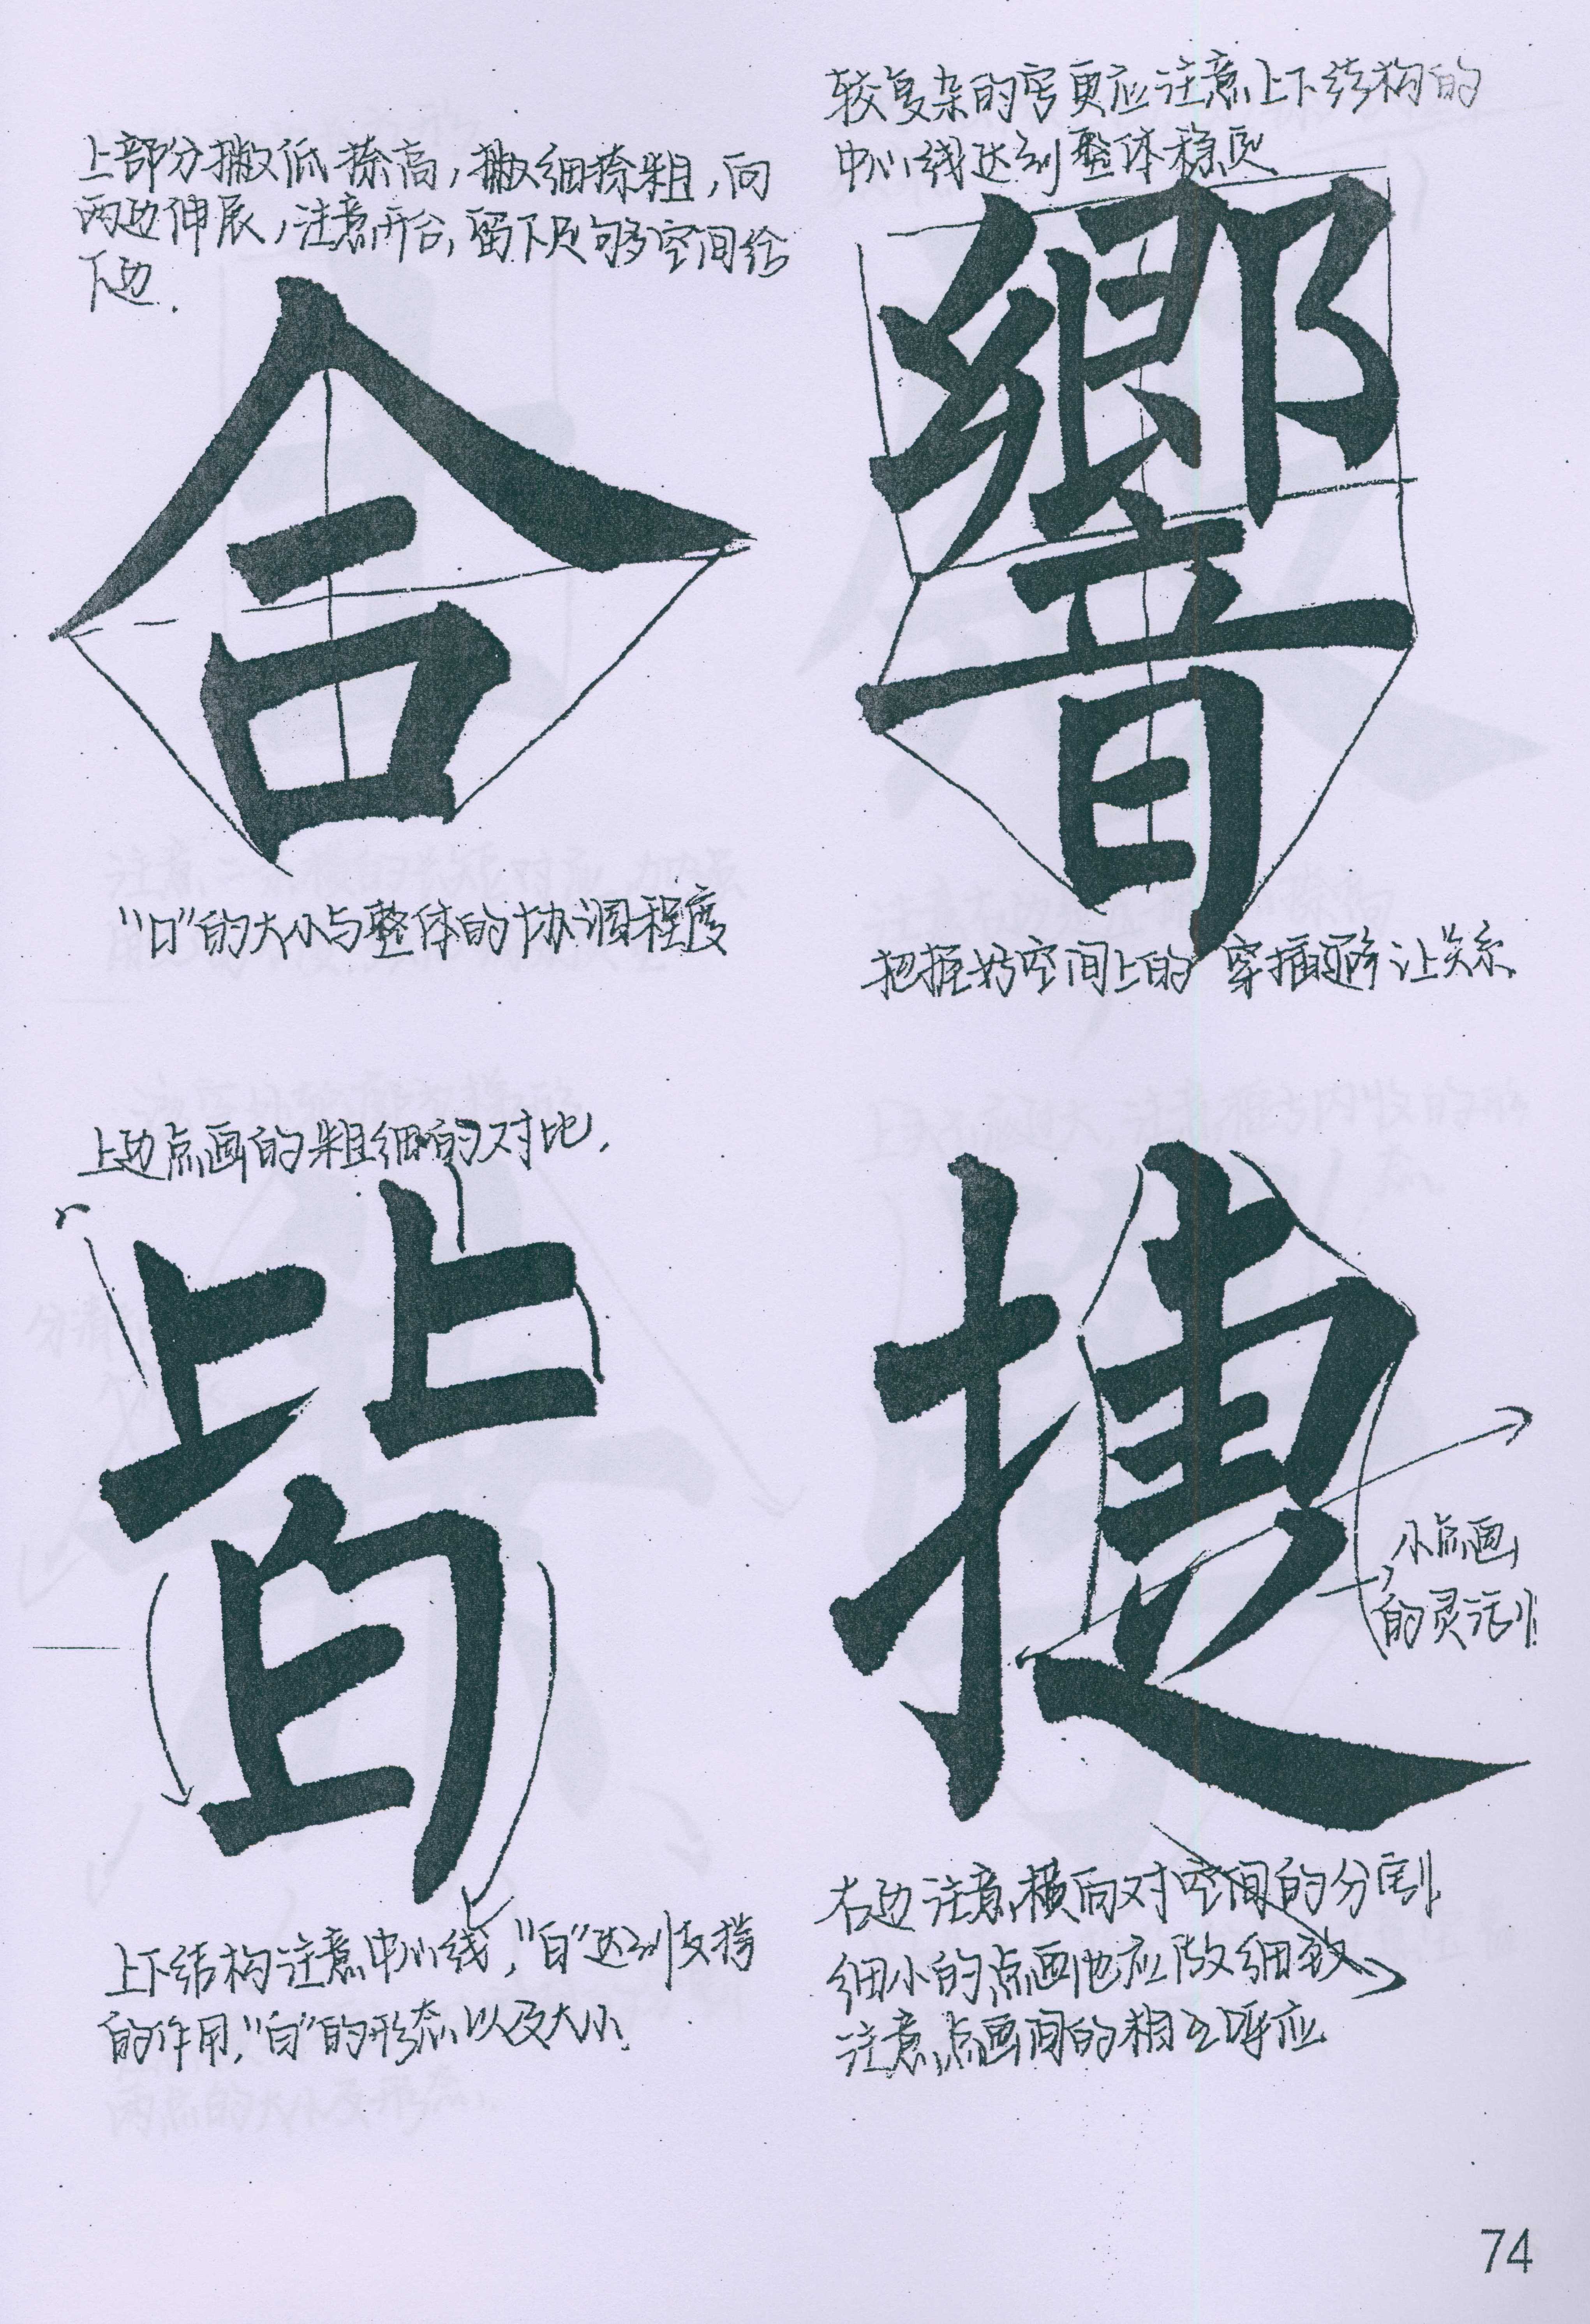 上部分撇低捺高，撇细捺粗，向
两边伸展，注意开合，留下足够空间给
下边.
合
“口”的大小与整体的协调程度
较复杂的字更应注意上下结构的
中心线达到整体稳定
響
把握好空间上的穿插避让关系
上边点画的粗细的对比.
皆
上下结构注意中心线，“白”达到支撑
的作用，“白”的形态以及大小.
捷
小点画
的灵活性
右边注意横向对空间的分割
细小的点画也应做细致
注意点画间的相互呼应
74